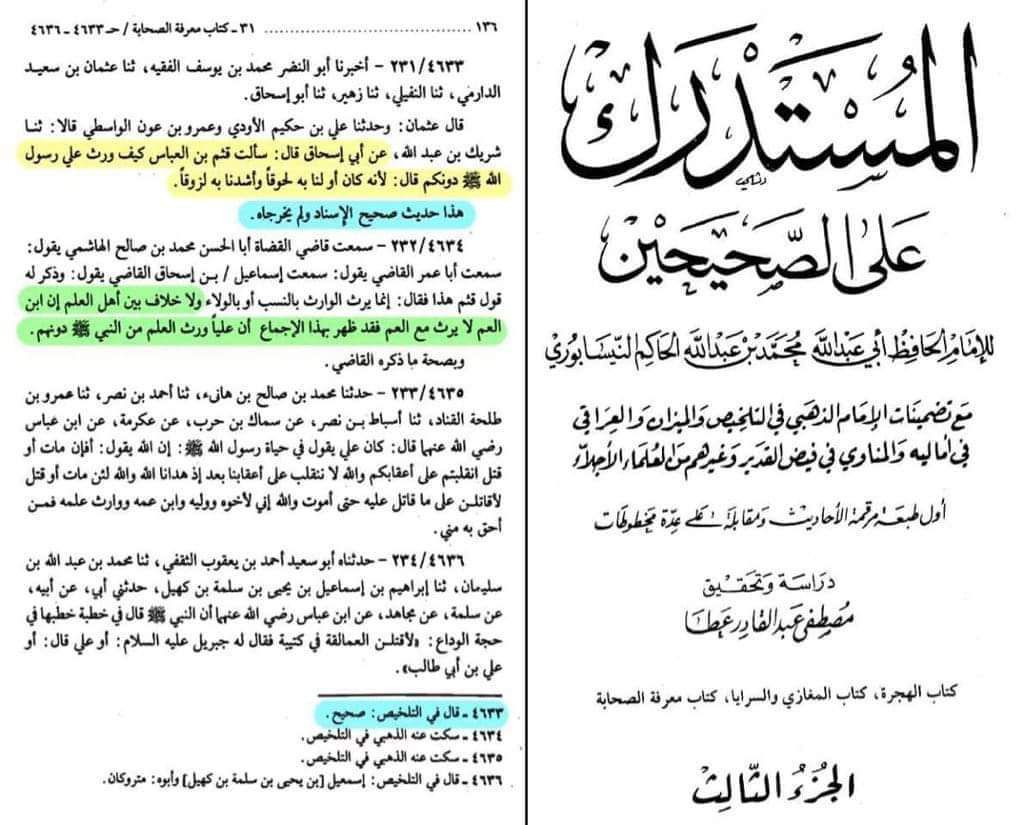 المستدرك
على الصحيحين
للإمام الحافظ أبي عبد الله محمد بن عبد الله الحاكم النيسابوري
مع تضمينات الإمام الذهبي في التلخيص والميزان والعراقي
في أماليه والمناوي في فيض القدير وغيرهم من العلماء الأجلاء
أول طبعة مرقمة الأحاديث ومقابلة على عدة مخطوطات
دراسة وتحقيق
مصطفى عبد القادر عطا
كتاب الهجرة، كتاب المغازي والسرايا، كتاب معرفة الصحابة
الجزء الثالث
١٣٦ ........................ ٣١ - كتاب معرفة الصحابة / حـ ٤٦٣٣ - ٤٦٣٦
٢٣١/٤٦٣٣ - أخبرنا أبو النضر محمد بن يوسف الفقيه، ثنا عثمان بن سعيد
الدارمي، ثنا النفيلي، ثنا زهير، ثنا أبو إسحاق.
قال عثمان: وحدثنا علي بن حكيم الأودي وعمرو بن عون الواسطي قالا: ثنا
شريك بن عبد الله، عن أبي إسحاق قال: سألت قثم بن العباس كيف ورث علي رسول
الله ﷺ دونكم قال: لأنه كان أو لنا به لحوقاً وأشدنا به لزوقاً.
هذا حديث صحيح الإسناد ولم يخرجاه.
٢٣٢/٤٦٣٤ - سمعت قاضي القضاة أبا الحسن محمد بن صالح الهاشمي يقول:
سمعت أبا عمر القاضي يقول: سمعت إسماعيل / بن إسحاق القاضي يقول: وذكر له
قول قثم هذا فقال: إنما يرث الوارث بالنسب أو بالولاء ولا خلاف بين أهل العلم إن ابن
العم لا يرث مع العم فقد ظهر بهذا الإجماع أن علياً ورث العلم من النبي ﷺ دونهم.
وبصحة ما ذكره القاضي.
٢٣٣/٤٦٣٥ - حدثنا محمد بن صالح بن هانىء، ثنا أحمد بن نصر، ثنا عمرو بن
طلحة القناد، ثنا أسباط بن نصر، عن سماك بن حرب، عن عكرمة، عن ابن عباس
رضي الله عنهما قال: كان علي يقول في حياة رسول الله ﷺ: إن الله يقول: أفإن مات أو
قتل انقلبتم على أعقابكم والله لا ننقلب على أعقابنا بعد إذ هدانا الله والله لئن مات أو قتل
لأقاتلن على ما قاتل عليه حتى أموت والله إني لأخوه ووليه وابن عمه ووارث علمه فمن
أحق به مني.
٢٣٤/٤٦٣٦ - حدثناه أبو سعيد أحمد بن يعقوب الثقفي، ثنا محمد بن عبد الله بن
سليمان، ثنا إبراهيم بن إسماعيل بن يحيى بن سلمة بن كهيل، حدثني أبي، عن أبيه،
عن سلمة، عن مجاهد، عن ابن عباس رضي الله عنهما أن النبي ﷺ قال في خطبة خطبها في
حجة الوداع: «لأقتلن العمالقة في كتيبة فقال له جبريل عليه السلام: أو علي قال: أو
علي بن أبي طالب».
٤٦٣٣ - قال في التلخيص: صحيح.
٤٦٣٤ - سكت عنه الذهبي في التلخيص.
٤٦٣٥ - سكت عنه الذهبي في التلخيص.
٤٦٣٦ - قال في التلخيص: إسمعيل [بن يحيى بن سلمة بن كهيل] وأبوه: متروكان.